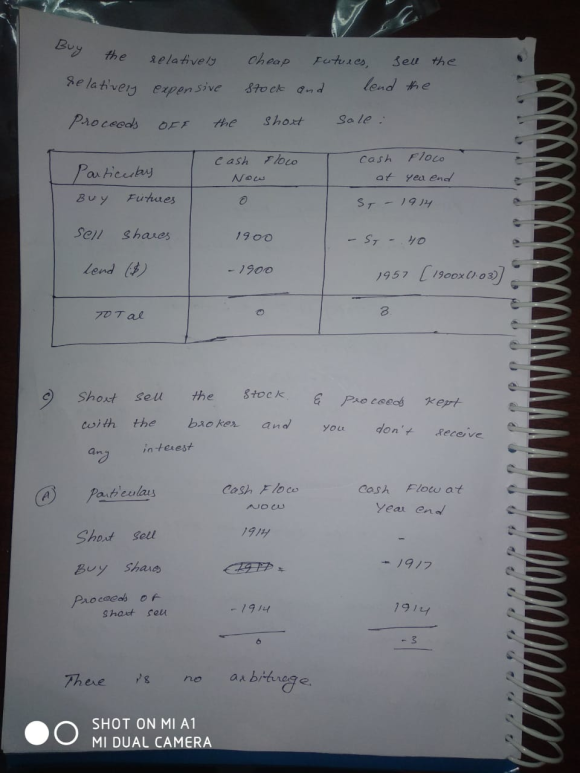 Buy the relatively cheap Futures, Sell the
Relatively expensive Stock and lend the
Proceeds OFF the Short Sale:
Particulars Cash Flow Now Cash Flow at Year end
Buy Futures 0 ST - 1914
Sell Shares 1900 - ST - 40
Lend ($) -1900 1957 [1900x(1.03)]
TOTal 0 3
c) Short sell the Stock & Proceeds Kept
with the broker and you don't receive
any interest
(A) Particulars Cash Flow Now Cash Flow at Year end
Short Sell 1914 -
Buy Shares - 1917
Proceeds of Short sell -1914 1914
0 -3
There is no arbiturege.
SHOT ON MI A1
MI DUAL CAMERA